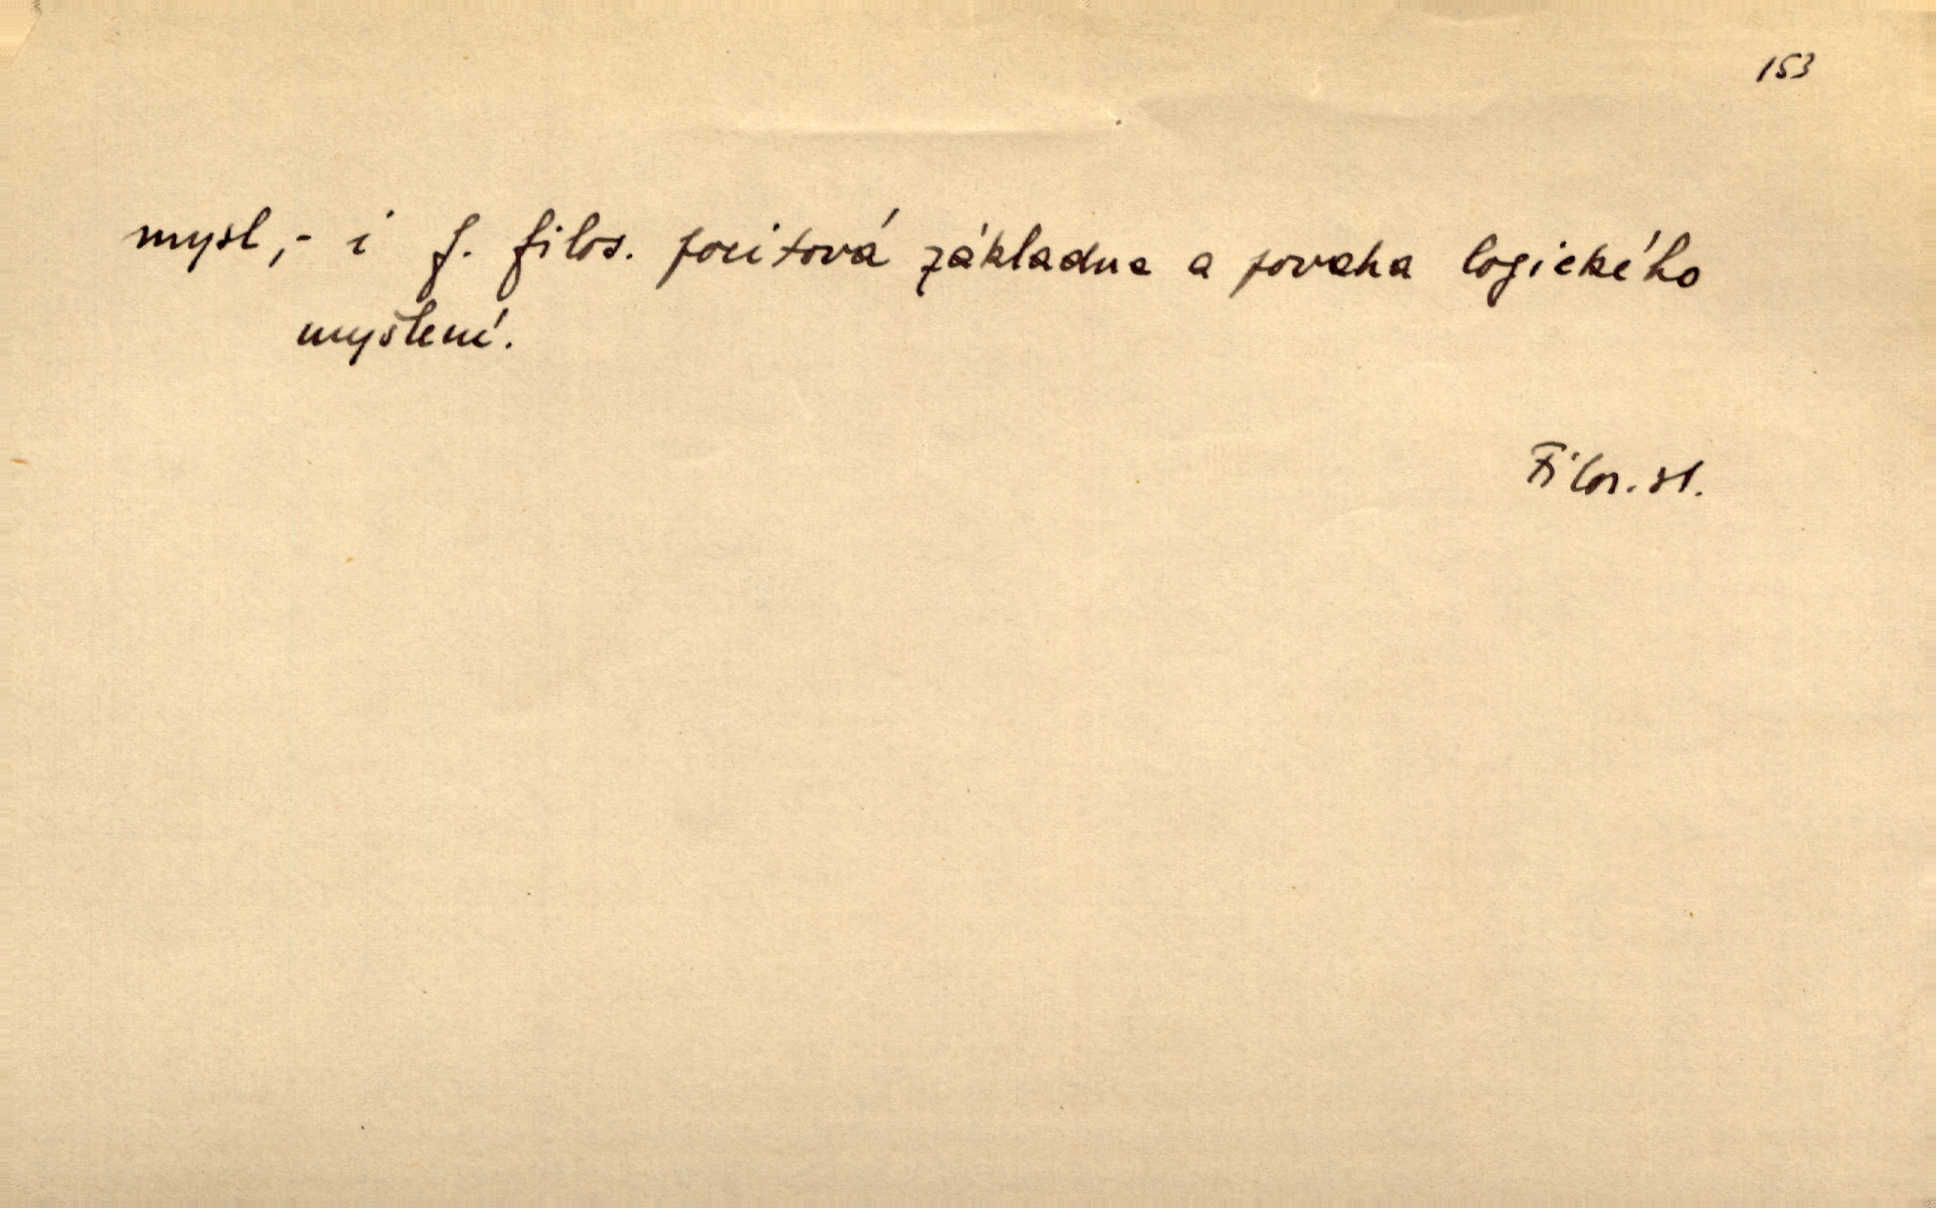 153
mysl,- i f. filos. pocitová základna a povaha logického
myšlení.
Filos. sl.